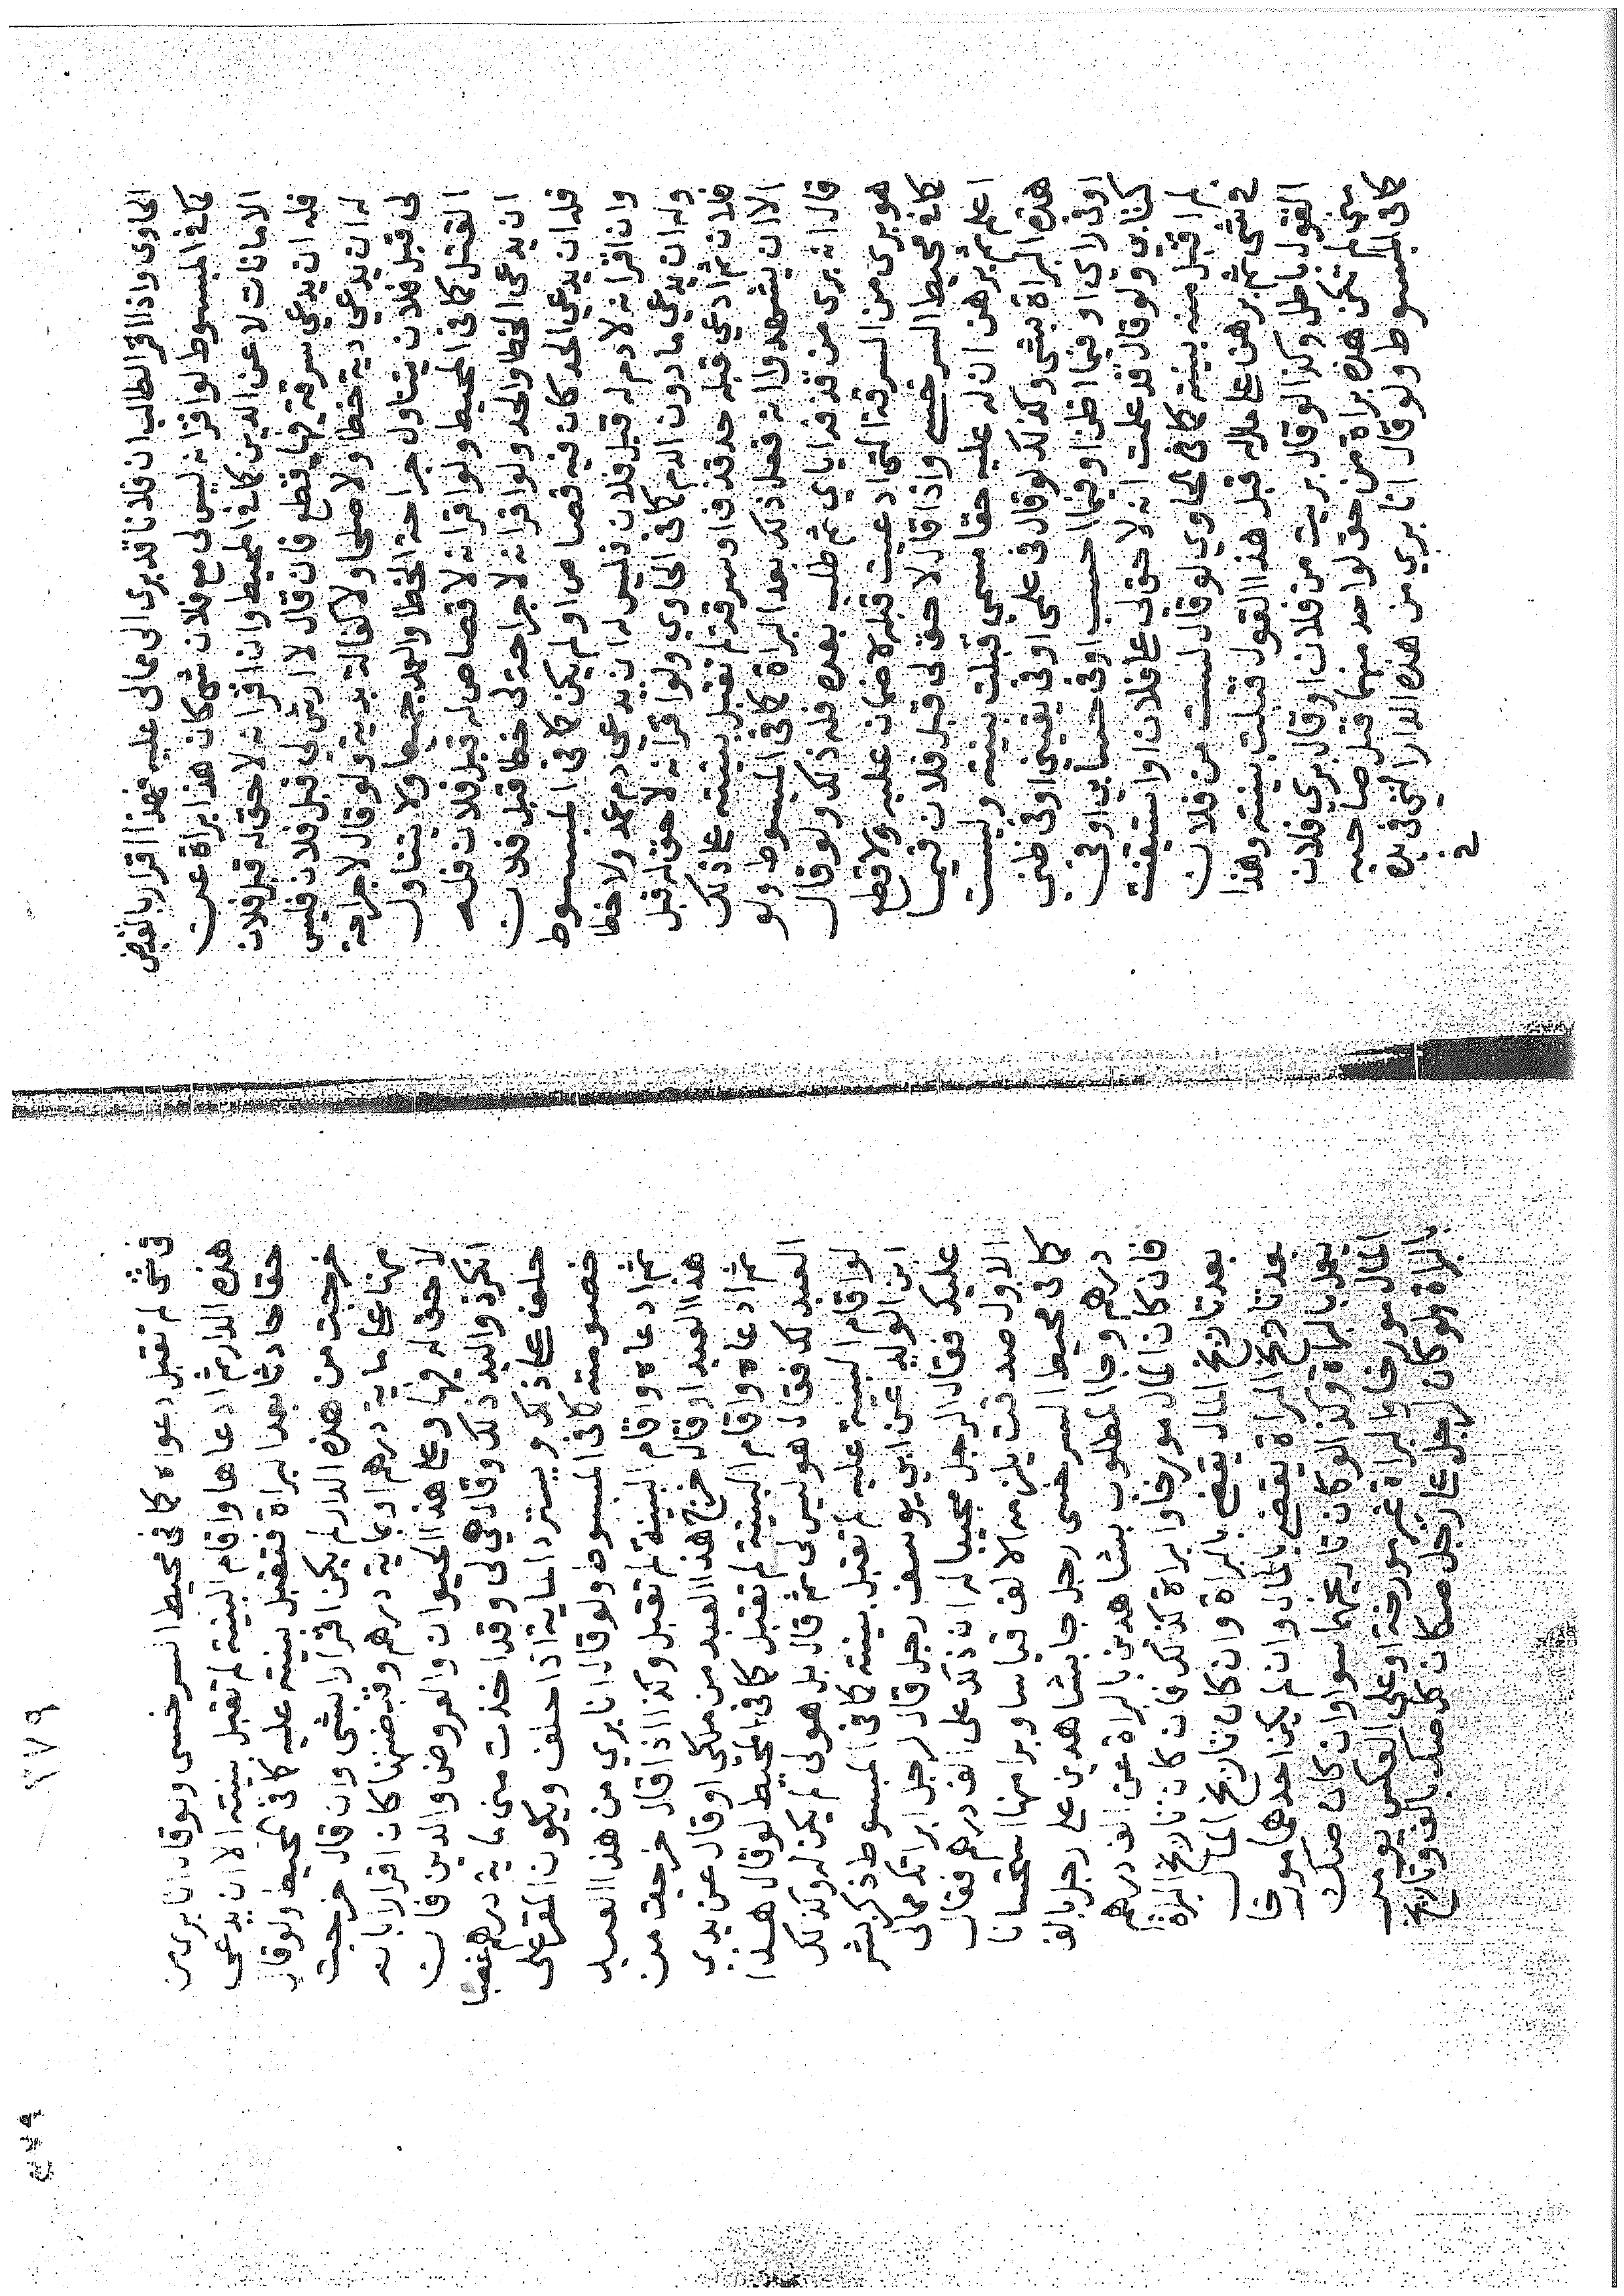 الحاوى واذا اقر الطالب ان فلانا قد برى الى ممالى عليه فهذا اقرار بالقبض
كما فى المبسوط لو اقر انه ليس لى مع فلان شى كان هذا براة عن
الامانات لا عن الدين كما فى المحيط وان اقر انه لا حق له قبل فلان
فله ان يدعي سرقة فيها قطع فان قال لا ارش لى قبل فلان فليس
له ان يدعي دية خطا ولا صلحا ولا كفالة بدية ولو قال لا جراحة
لى قبل فلان يتناول جراحة الخطا والعمد جميعا ولا يتناول
القتل كما فى المحيط ولو اقر انه لا قصاص له قبل فلان فله
ان يدعى الخطا والحد ولو اقر انه لا جراحة لى خطا قبل فلان
فله ان يدعي العمد كان فيه قصاص او لم يكن كما فى المبسوط
وان اقر انه لا دم له قبل فلان فليس له ان يدعي دم عمد ولا خطا
وله ان يدعي ما دون الدم كما فى الحاوي ولو اقر انه لا حق له قبل
فلان ثم ادعي قبله حد قذف او سرقة لم تقبل بينته على ذلك
الا ان يشهدوا انه فعل ذلك بعد البراة كما فى المبسوط ولو
قال انه برى من قذفه اياي ثم طلبه بعده فله ذلك ولو قال
هو برى من السرقة التى ادعيت قبله لا ضمان عليه ولا قطع
كما فى محيط السرخسى واذا قال لا حق لى قبل فلان فيما
اعلم ثم برهن ان له عليه حقا مسمي قبلت بينته وليست
هذه البراة بشى وكذلك لو قال فى علمى او فى يقينى او فى ظنى
او فى رايي او فيما اظن او فيما احسب او فى حسابى او فى
كتابى ولو قال قد علمت انه لا حق لى على فلان او استيقنت
لم اقبل منه بينته كما فى الحاوي لو قال لست من فلان
فى شى ثم برهن على مال له قبل هذا القول قبلت بينته وهذا
القول باطل وكذا لو قال بريت من فلان او قال برى فلان
منى لم تكن هذه براة من حق لواحد منهما قبل صاحبه
كما فى المبسوط ولو قال انا بري من هذه الدار التى فى يده
فى شى لم تقبل دعواه كما فى محيط السرخسى ولو قال انا برى من
هذه الدار ثم ادعاها واقام البينة لم تقبل بينته الا ان يدعى
حقا حادثا بعد البراة فتقبل بينته عليه كما فى المحيط ولو قال
خرجت من هذه الدار لم يكن اقرارا بشى وان قال خرجت
منها على ماية درهم او بماية درهم وقبضتها كان اقرارا بانه
لا حق له فيها وعلى هذا الحيوان والعروض والدين فان
انكر ذو اليد ذلك وقال هي لى وقد اخذت منى ماية درهم غصبا
حلف على ذلك ويسترد الماية اذا حلف ويكون المقر على
خصومته كما فى المبسوط ولو قال انا بري من هذا العبد
ثم ادعاه واقام البينة لم تقبل وكذا اذا قال خرجت من
هذا العبد او قال خرج هذا العبد من ملكي او قال عن يدى
ثم ادعاه واقام البينة لم تقبل كما فى المحيط لو قال هذا
العبد لك فقال هو ليس لى ثم قال بل هو لى لم يكن له وكذلك
لو اقام البينة عليه لم تقبل بينته كما فى المبسوط ذكر بشر
ابن الوليد عن ابي يوسف رجل قال لرجل ابراتك ممالى
عليك فقال الرجل مجيبا له ان لك على الف درهم فقال
الاول صدقت يلزمه الالف قياسا وبرا منها استحسانا
كما فى محيط السرخسى رجل جا بشاهدين على رجل بالف
درهم وجا المطلوب بشاهدين بالبراة عن الف درهم
فان كان المال مورخا والبراة كذلك فان كان تاريخ البراة
بعد تاريخ المال يقضى بالبراة وان كان تاريخ المال
بعد تاريخ البراة يقضى بالمال وان لم يكن احدهما مورخا
يعمل بالبراة وكذا لو كان تاريخهما سوا وان كان صك
المال مورخا والبراة غير مورخة او على العكس يومر
بالبراة ولو كان لرجل على رجل صكان كل صك بالف وتاريخ